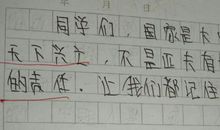 月
同学们，国家是大
天下兴亡，不是匹夫有
的责任．让我们都记住